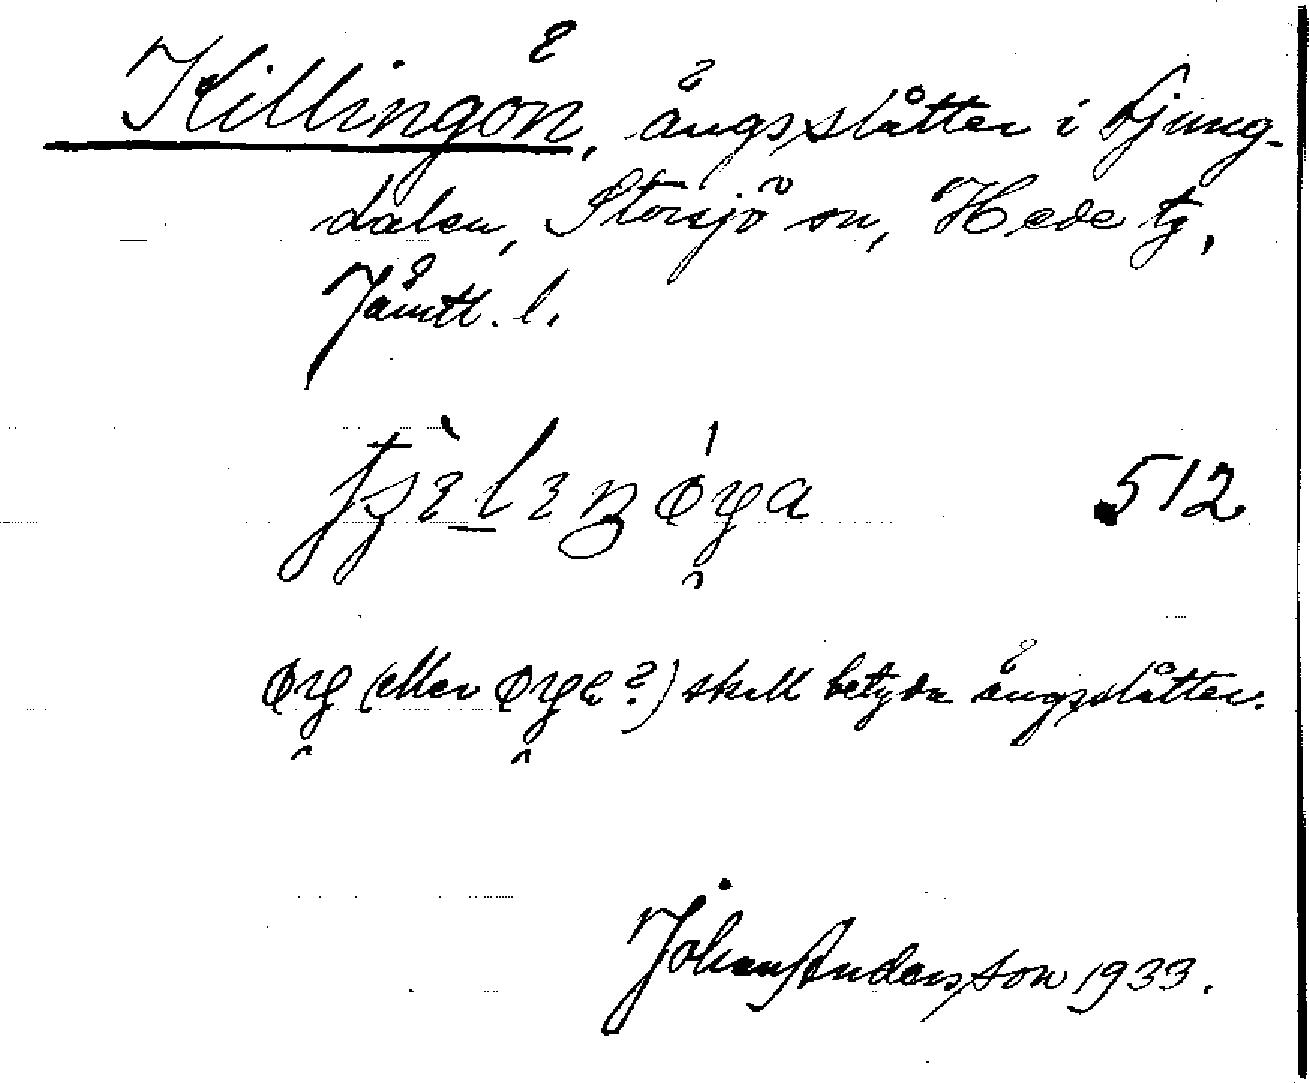 Killingön, ängsslåtter i Ljung-
dalen, Storsjö sn, Hede tg,
Jämtl. l.
512
(eller ?) skall betyda ängsslåtter.
Johan Andersson 1933.